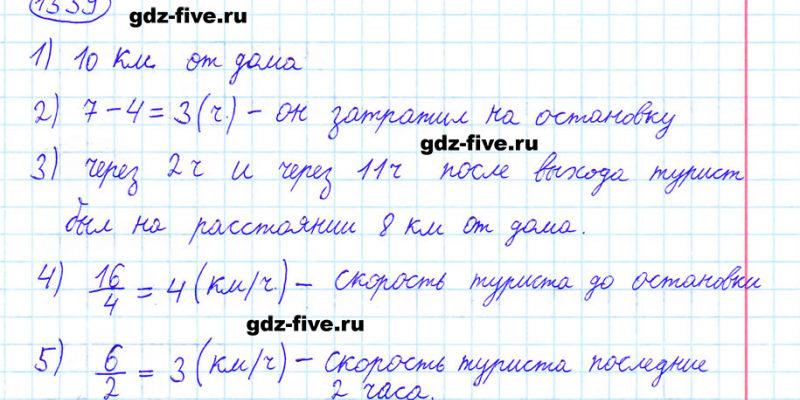 1339
gdz-five.ru
1) 10 км. от дома
2) 7 - 4 = 3 (ч.) - он затратил на остановку
gdz-five.ru
3) через 2 ч и через 11 ч после выхода турист
был на расстоянии 8 км от дома.
4) 16/4 = 4 (км/ч.) - скорость туриста до остановки
gdz-five.ru
5) 6/2 = 3 (км/ч) - скорость туриста последние
2 часа.